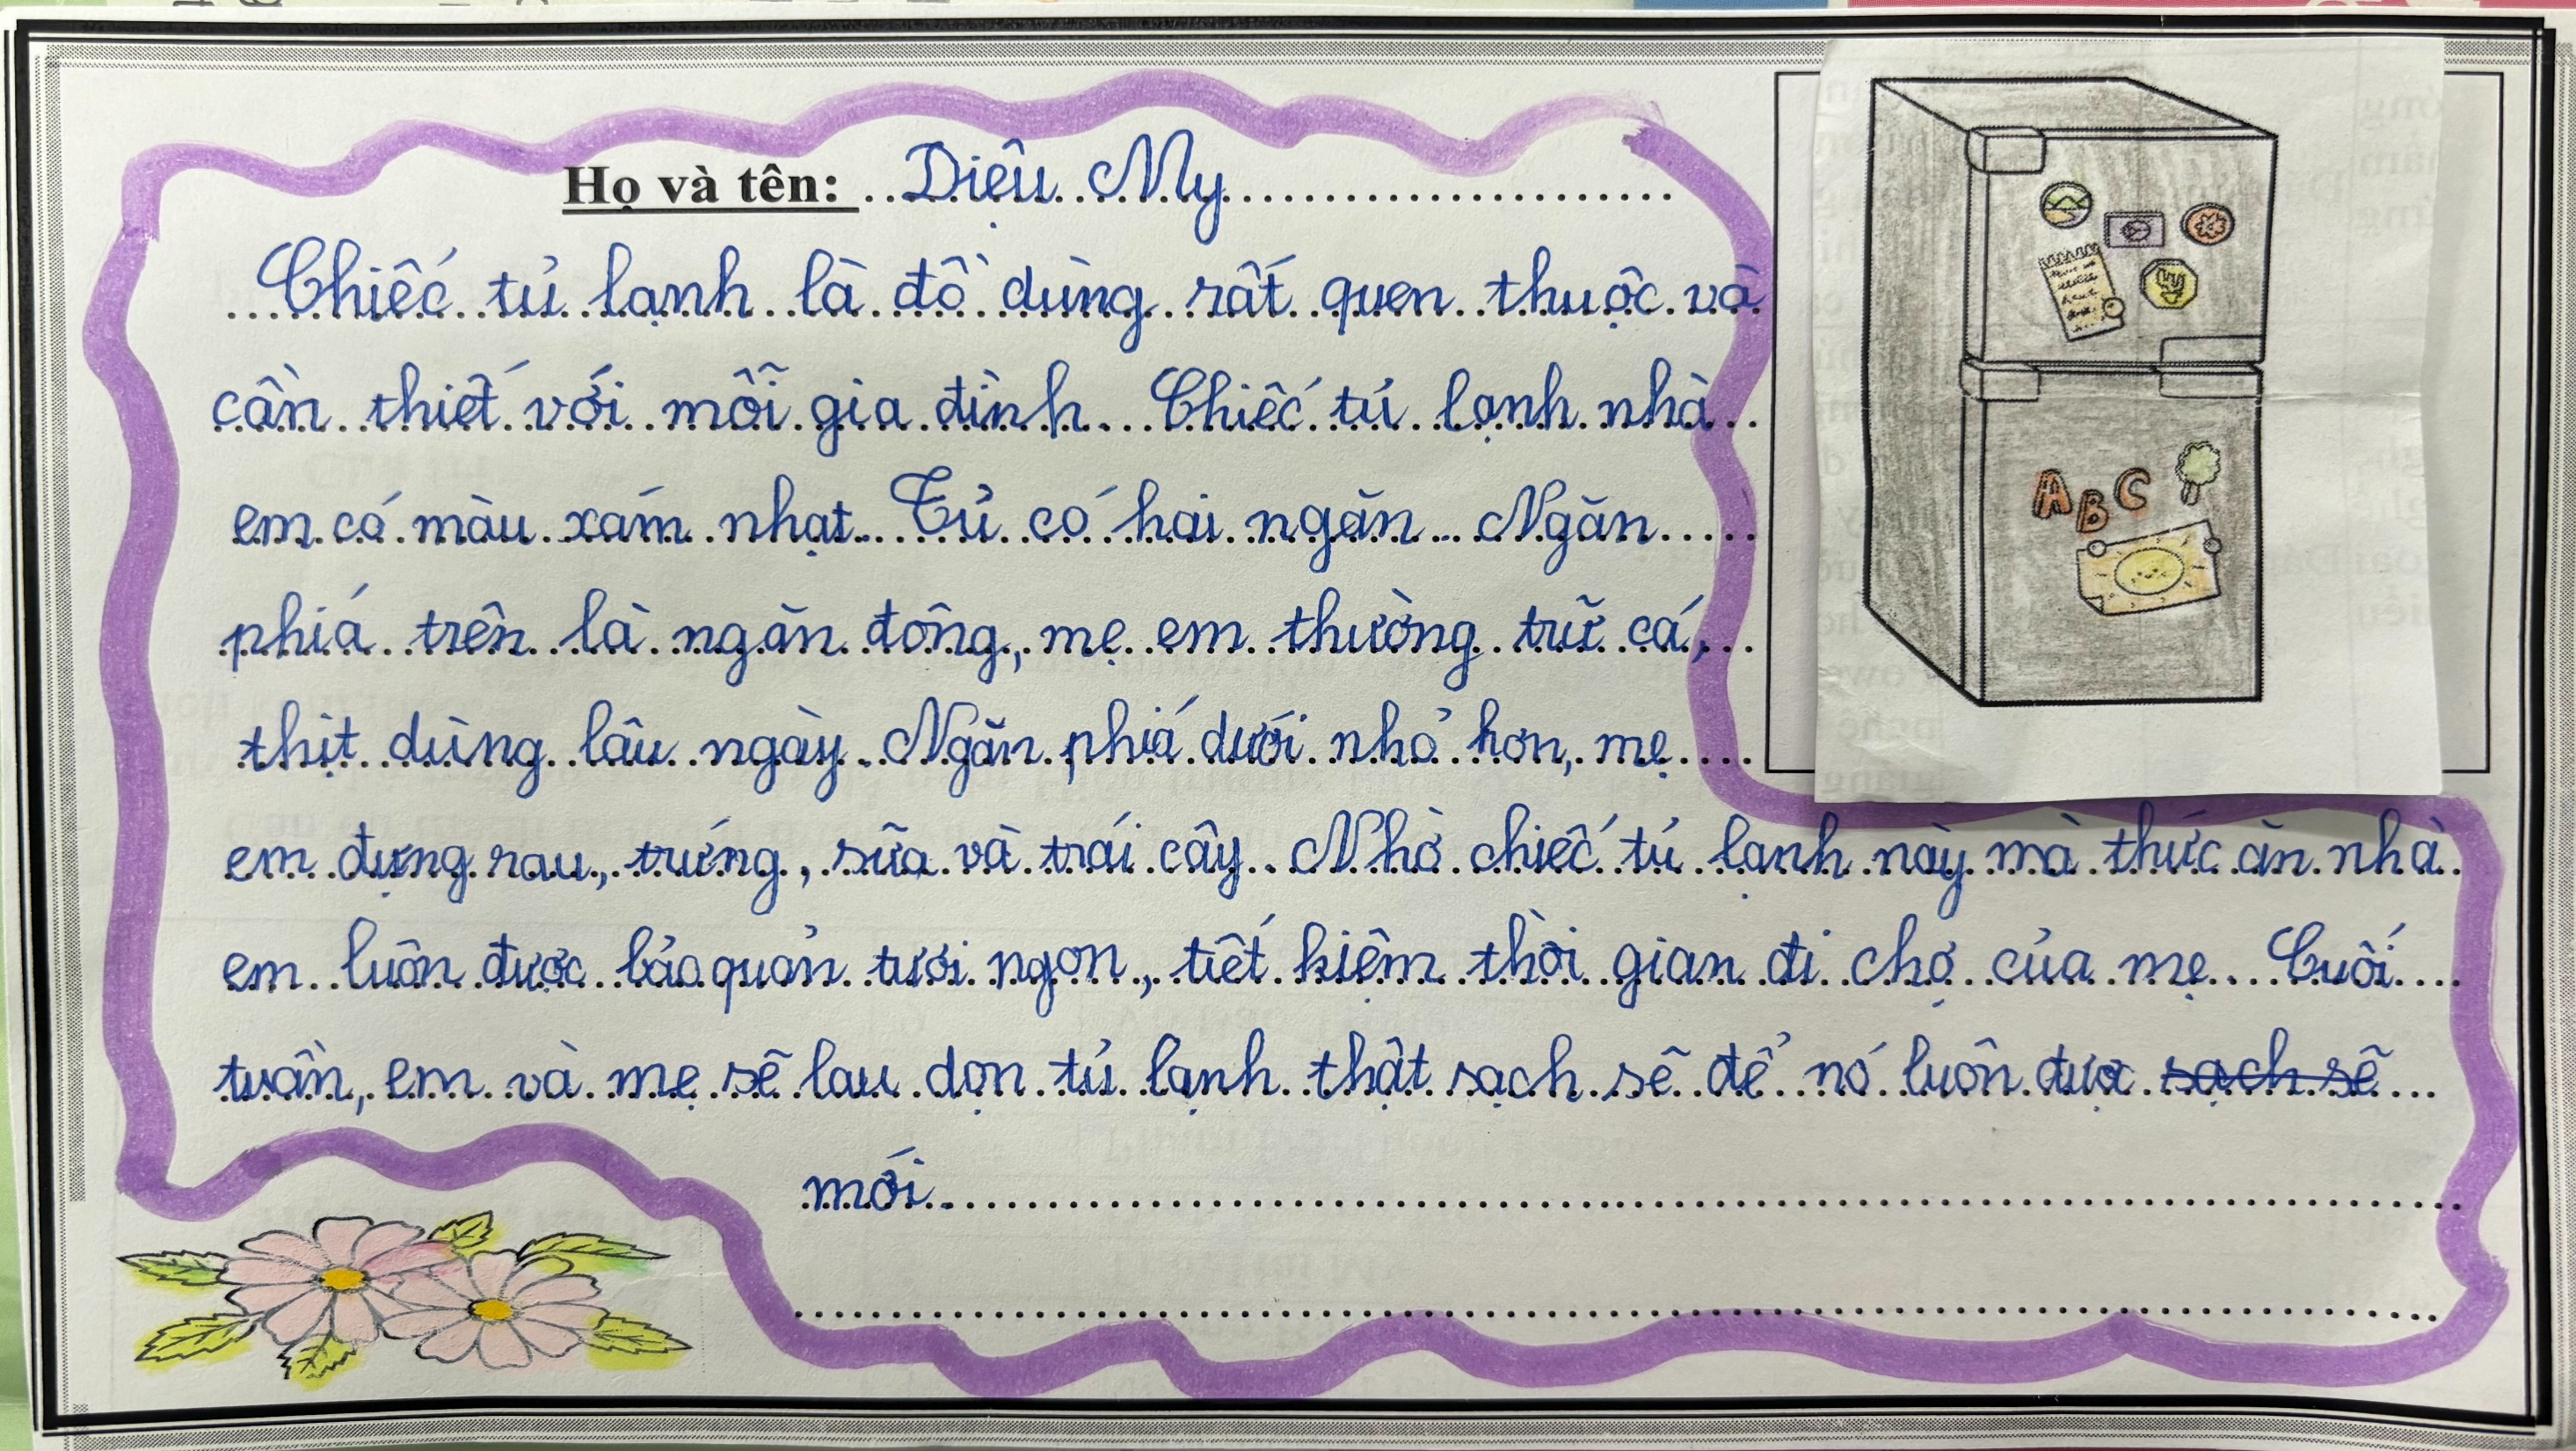 Họ và tên: Diệu My
Chiếc tủ lạnh là đồ dùng rất quen thuộc và
cần thiết với mỗi gia đình. Chiếc tủ lạnh nhà
em có màu xám nhạt. Tủ có hai ngăn. Ngăn
phiá trên là ngăn đông, mẹ em thường trữ cá,
thịt dùng lâu ngày. Ngăn phiá dưới nhỏ hơn, mẹ
em đựng rau, trứng, sữa và trái cây. Nhờ chiếc tủ lạnh này mà thức ăn nhà
em luôn được bảo quản tươi ngon, tiết kiệm thời gian đi chợ của mẹ. Cuối
tuần, em và mẹ sẽ lau dọn tủ lạnh thật sạch sẽ để nó luôn được sạch sẽ
mới.
ABC